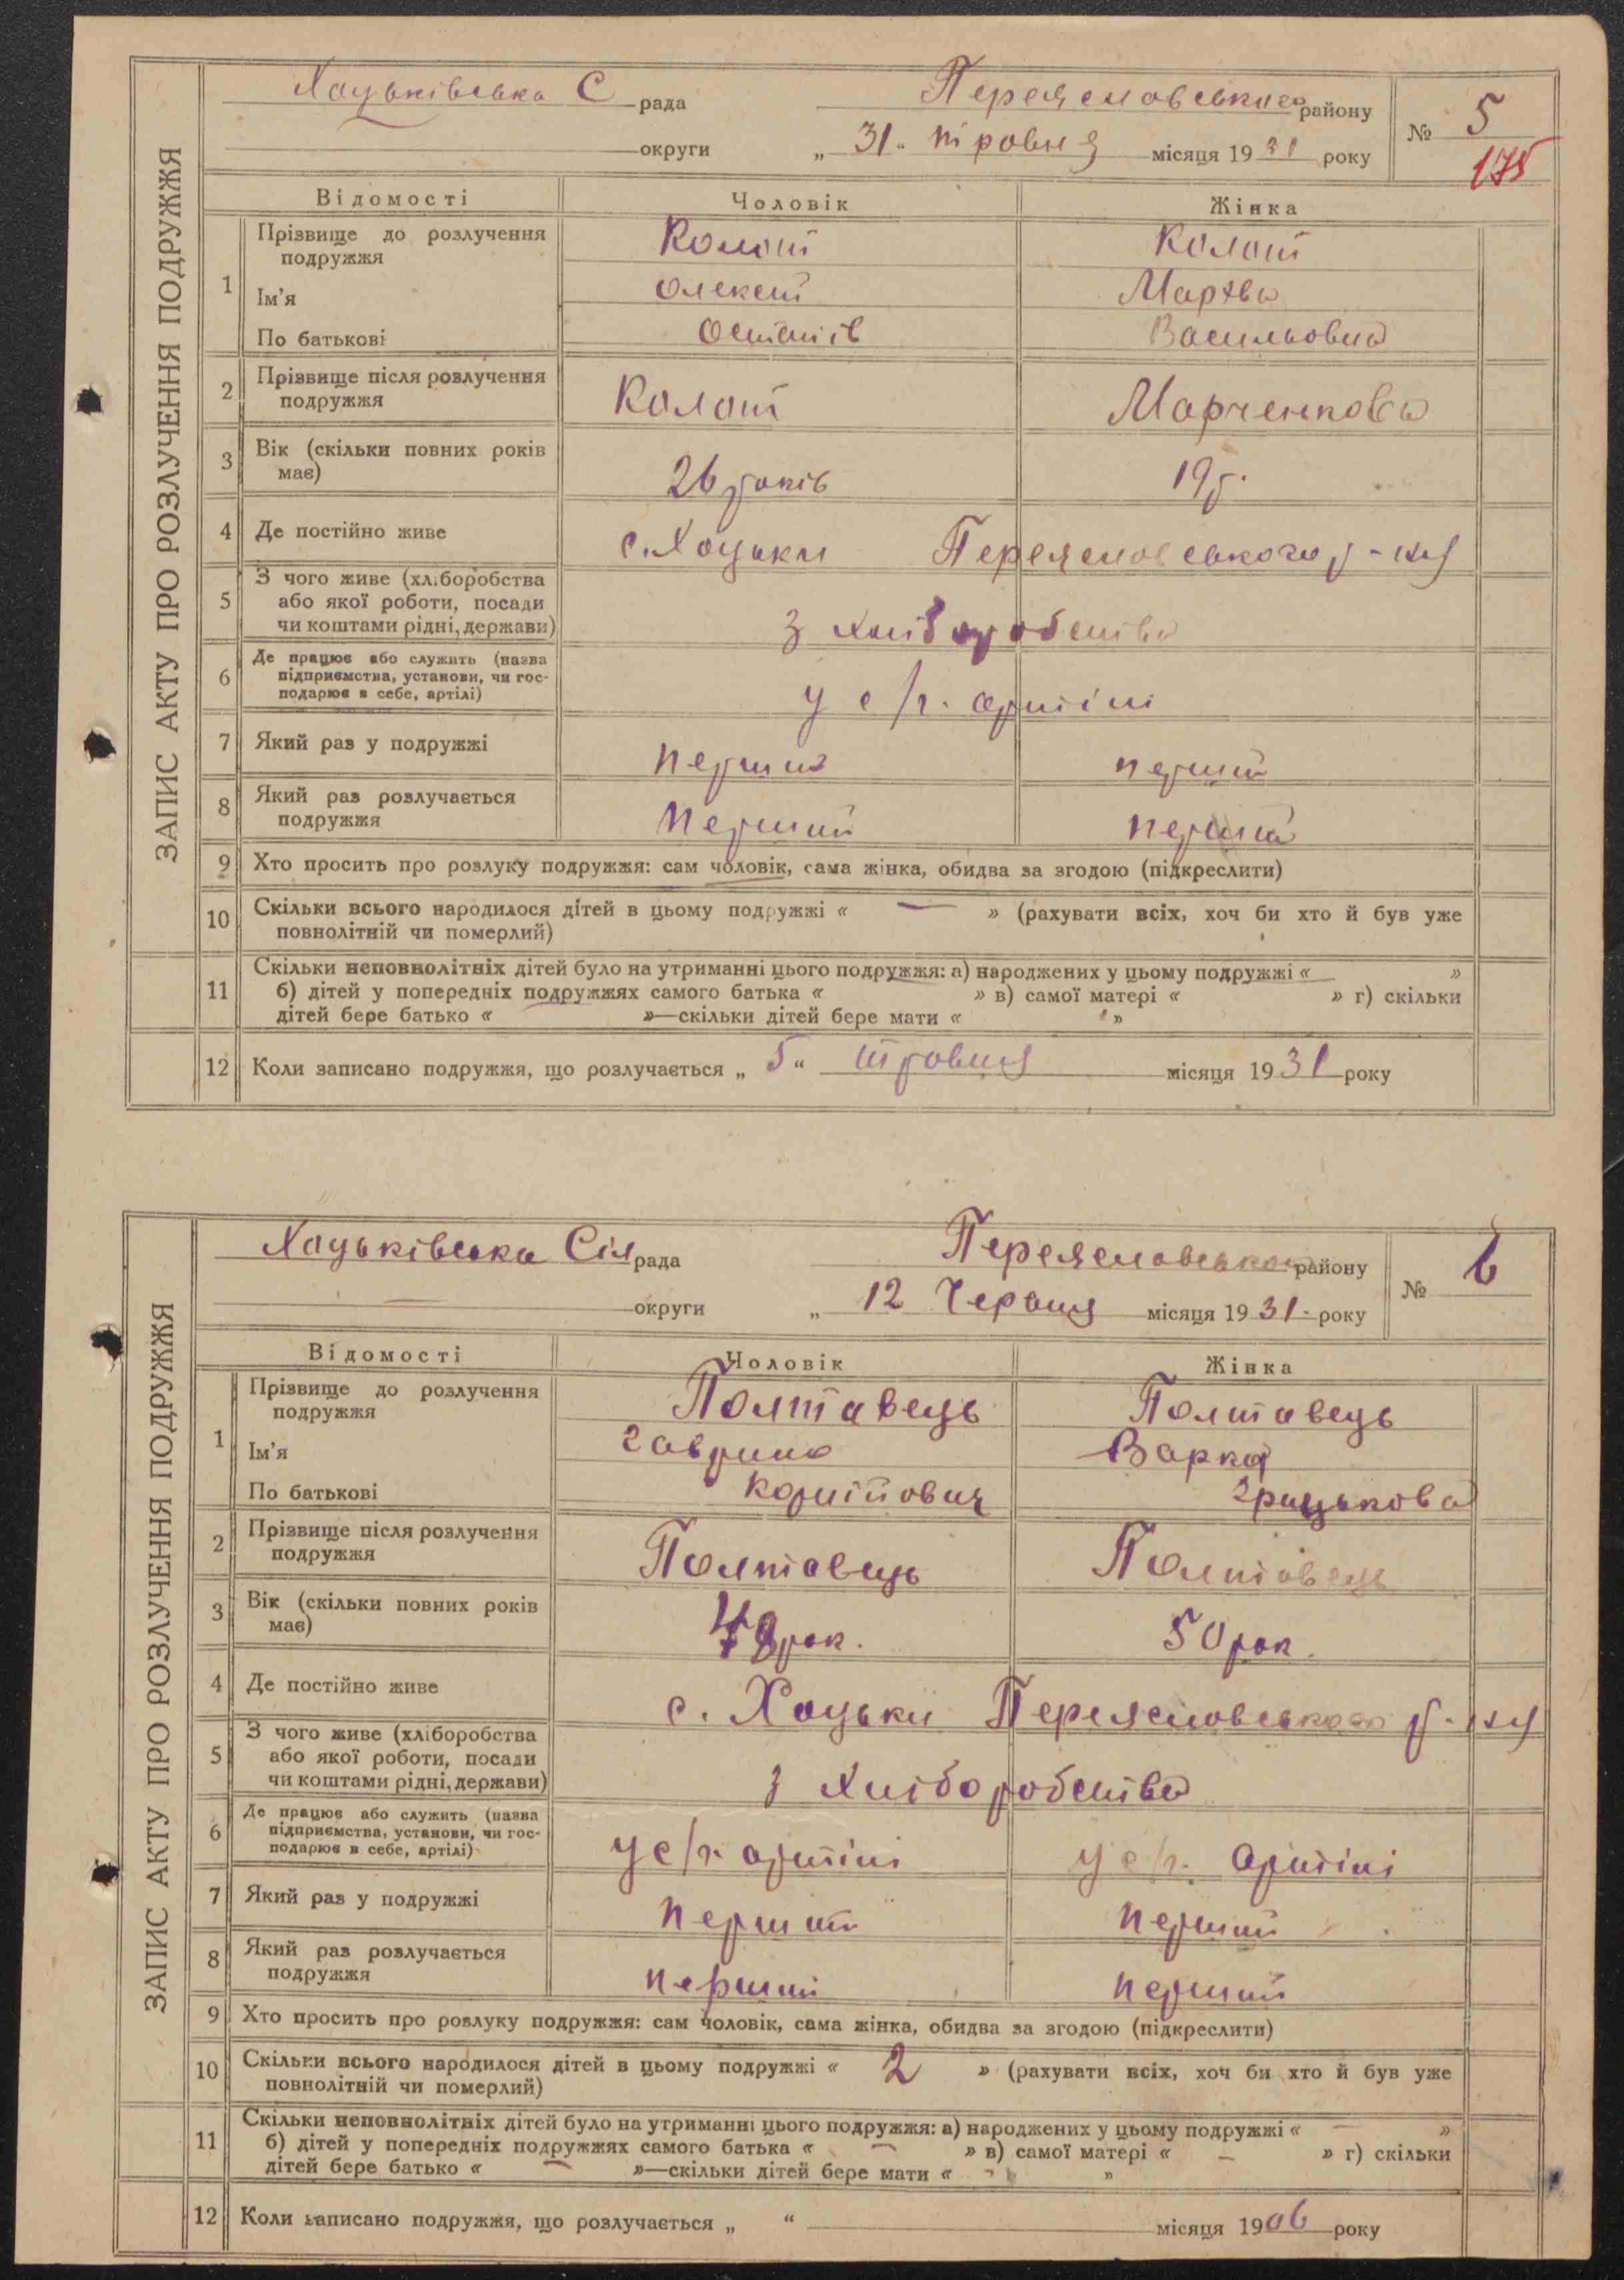 ЗАПИС АКТУ ПРО РОЗЛУЧЕННЯ ПОДРУЖЖЯ
Хоцьківська С рада Переяславського району
округи „ 31 “ травня місяця 1931 року № 5
175
Відомості Чоловік Жінка
1 Прізвище до розлучення подружжя Колот Колот
Ім'я Олексій Мархва
По батькові Остапів Васильовна
2 Прізвище після розлучення подружжя Колот Марченкова
3 Вік (скільки повних років має) 26 років 19 р.
4 Де постійно живе с. Хоцьки Переяславського р-ну
5 З чого живе (хліборобства або якої роботи, посади чи коштами рідні, держави) з хліборобства
6 Де працює або служить (назва підприємства, установи, чи господарює в себе, артілі) у с/г. артілі
7 Який раз у подружжі перший перший
8 Який раз розлучається подружжя перший перший
9 Хто просить про розлуку подружжя: сам чоловік, сама жінка, обидва за згодою (підкреслити)
10 Скільки всього народилося дітей в цьому подружжі « — » (рахувати всіх, хоч би хто й був уже
повнолітній чи померлий)
11 Скільки неповнолітніх дітей було на утриманні цього подружжя: а) народжених у цьому подружжі « »
б) дітей у попередніх подружжях самого батька « » в) самої матері « » г) скільки
дітей бере батько « »—скільки дітей бере мати « »
12 Коли записано подружжя, що розлучається „ 5 “ травня місяця 1931 року
ЗАПИС АКТУ ПРО РОЗЛУЧЕННЯ ПОДРУЖЖЯ
Хоцьківська Сіл рада Переяславського району
— округи „ 12 Червня місяця 1931 року № 6
Відомості Чоловік Жінка
1 Прізвище до розлучення подружжя Полтавець Полтавець
Ім'я Гаврило Варка
По батькові Корнійович Грицькова
2 Прізвище після розлучення подружжя Полтавець Полтавець
3 Вік (скільки повних років має) рок. 50 рок.
4 Де постійно живе с. Хоцьки Переяславського р-ну
5 З чого живе (хліборобства або якої роботи, посади чи коштами рідні, держави) з хліборобства
6 Де працює або служить (назва підприємства, установи, чи господарює в себе, артілі) у с/г. артілі у с/г. артілі
7 Який раз у подружжі перший перший
8 Який раз розлучається подружжя перший перший
9 Хто просить про розлуку подружжя: сам чоловік, сама жінка, обидва за згодою (підкреслити)
10 Скільки всього народилося дітей в цьому подружжі « 2 » (рахувати всіх, хоч би хто й був уже
повнолітній чи померлий)
11 Скільки неповнолітніх дітей було на утриманні цього подружжя: а) народжених у цьому подружжі « — »
б) дітей у попередніх подружжях самого батька « — » в) самої матері « — » г) скільки
дітей бере батько « — »—скільки дітей бере мати « — »
12 Коли записано подружжя, що розлучається „ “ місяця 1906 року